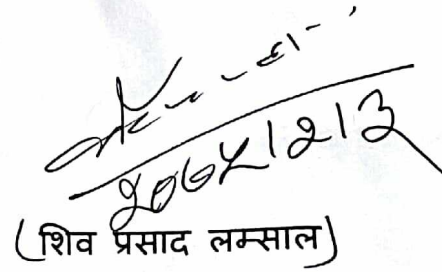 २०७५।२।३
(शिव प्रसाद लम्साल)